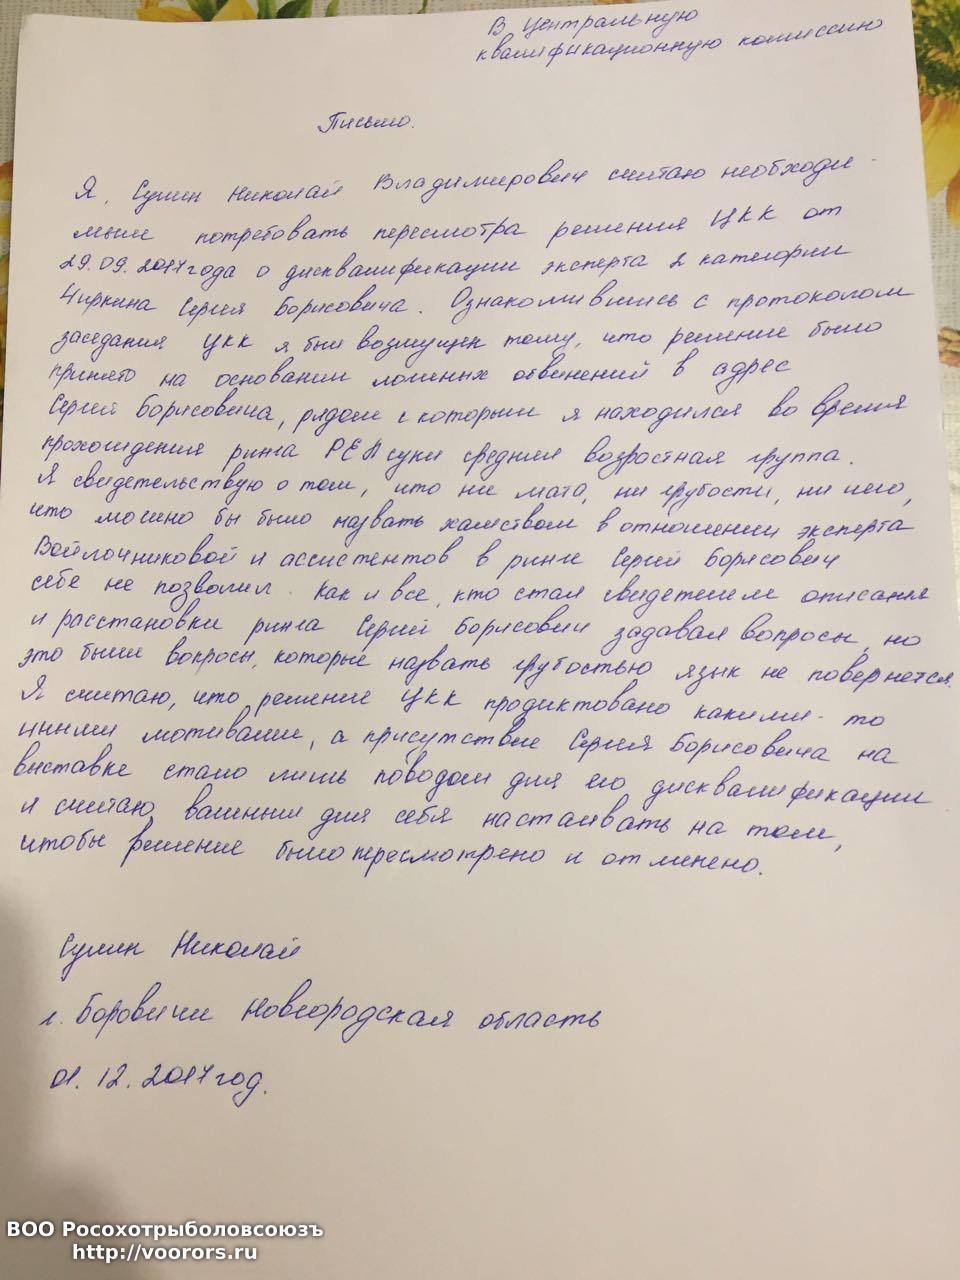 В Центральную
квалификационную комиссию
Письмо.
Я, Сумин Николай Владимирович считаю необходи-
мым потребовать пересмотра решения ЦКК от
29.09.2017 года о дисквалификации эксперта 2 категории
Чиркина Сергея Борисовича. Ознакомившись с протоколом
заседания ЦКК я был возмущен тому, что решение было
принято на основании ложных обвинений в адрес
Сергей Борисовича, рядом с которым я находился во время
прохождения ринга РЕЛ суки средний возрастная группа.
Я свидетельствую о том, что ни мата, ни грубости, ни чего,
что можно бы было назвать хамством в отношении эксперта
Войлочниковой и ассистентов в ринге Сергей Борисович
себе не позволил. Как и все, кто стал свидетелем описания
и расстановки ринга Сергей Борисович задавал вопросы, но
это были вопросы, которые назвать грубостью язык не повернется.
Я считаю, что решение ЦКК продиктовано какими-то
иными мотивами, а присутствие Сергея Борисовича на
выставке стало лишь поводом для его дисквалификации
и считаю важным для себя настаивать на том,
чтобы решение было пересмотрено и отменено.
Сумин Николай
г. Боровичи Новгородская область
01.12.2017 год.
ВОО Росохотрыболовсоюзъ
http://voorors.ru